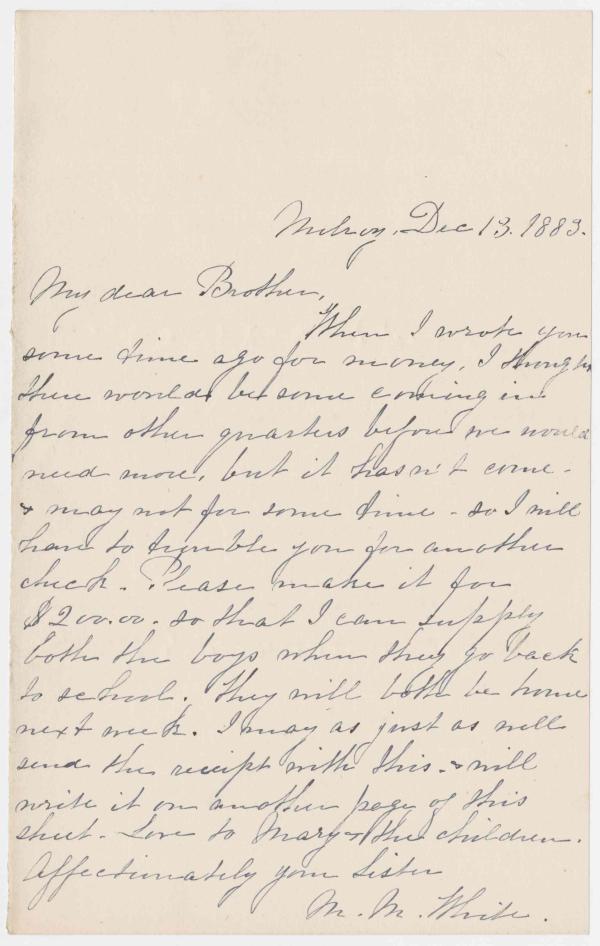 Milroy, Dec 13. 1883.
My dear Brother,
When I wrote you
some time ago for money, I thought
there would be some coming in
from other quarters before we would
need more, but it hasn't come -
& may not for some time - so I will
have to trouble you for another
check. Please make it for
$200.00. so that I can supply
both the boys when they go back
to school. They will both be home
next week. I may as just as well
send the receipt with this. & will
write it on another page of this
sheet. Love to Mary & the children.
Affectionately your Sister
M. M. White.